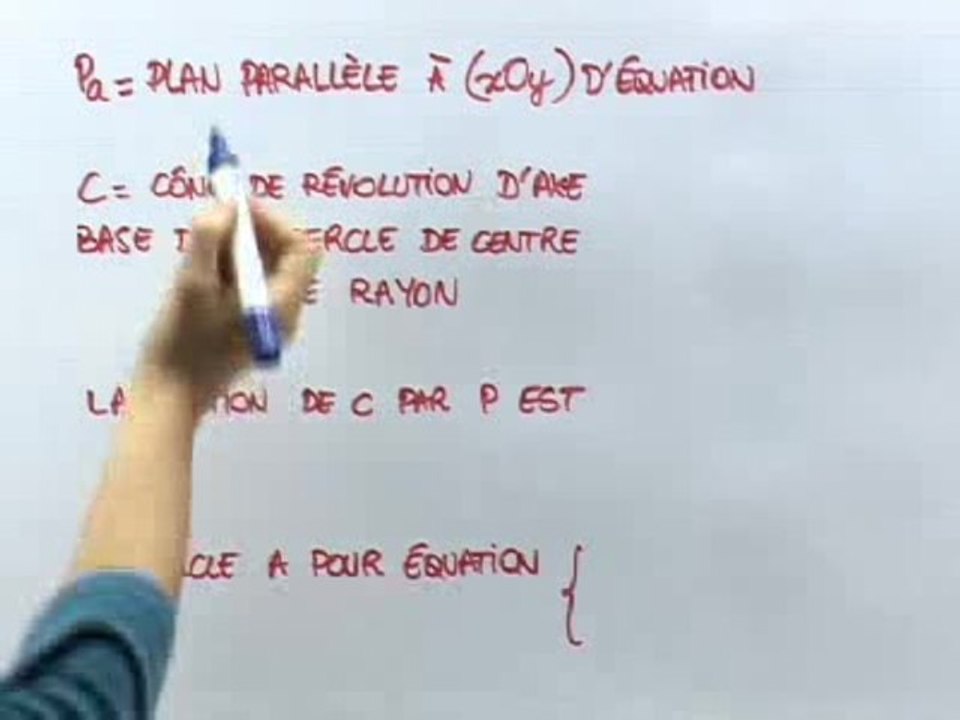 Pa = PLAN PARALLÈLE À (xOy) D'ÉQUATION
C = CÔN DE RÉVOLUTION D'AXE
BASE D ERCLE DE CENTRE
E RAYON
LA ION DE C PAR P EST
CLE A POUR ÉQUATION {